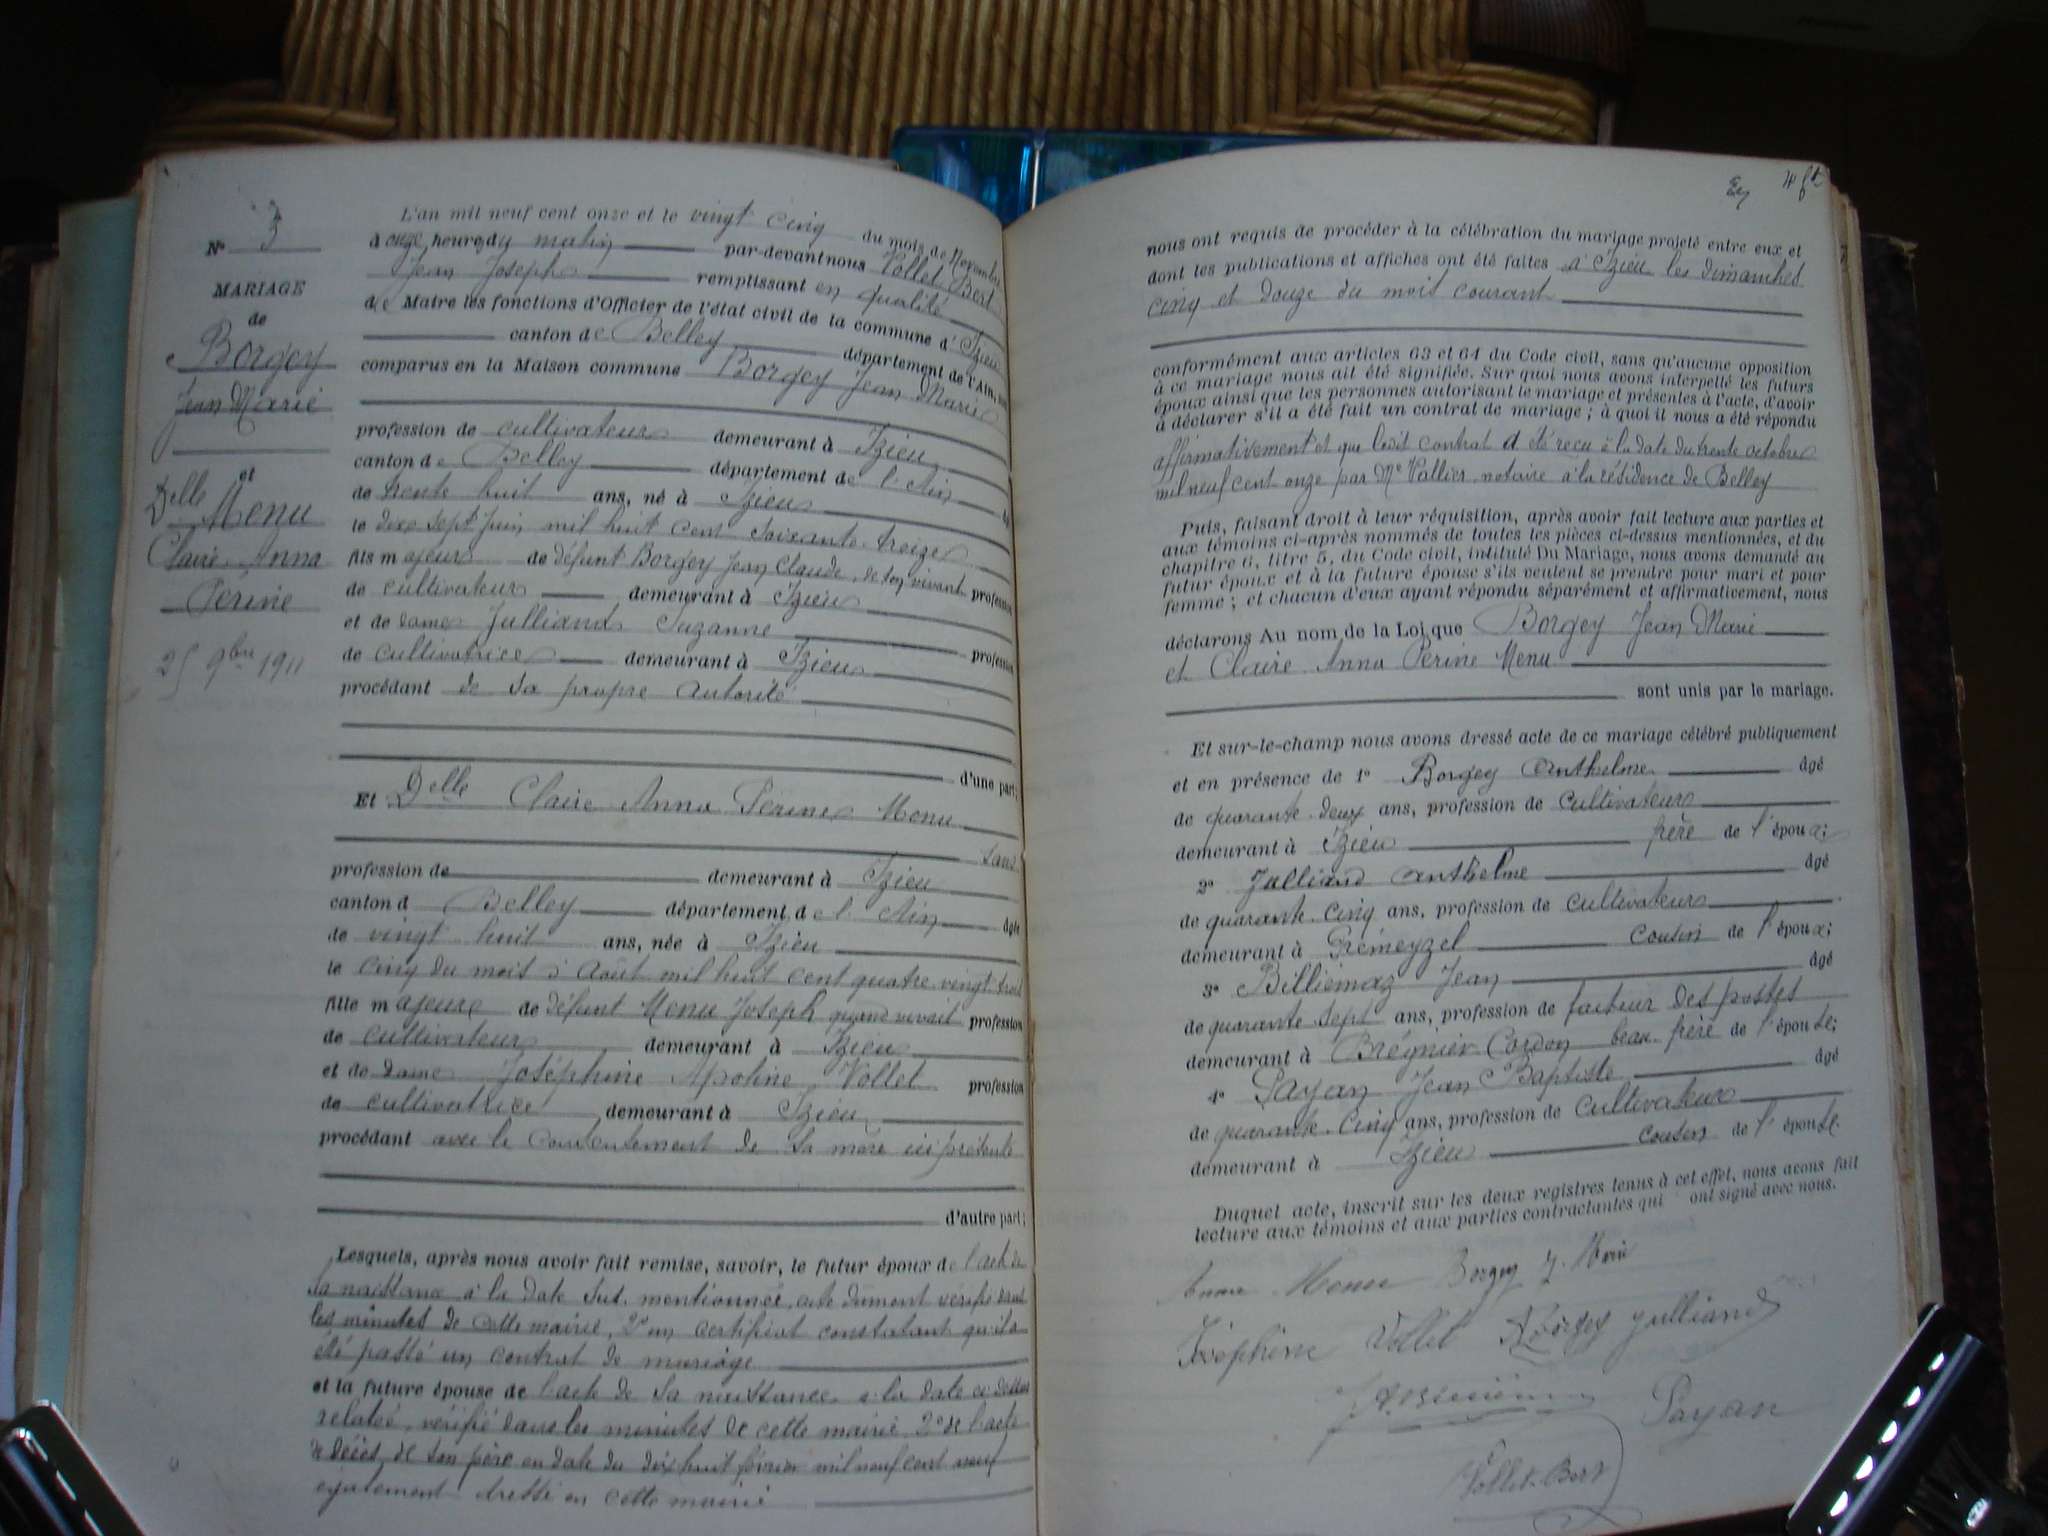 N° 3
MARIAGE
de
Borgey
Jean Marie
et
Delle Menu
Claire Anna
Perine
25 9bre 1911
L'an mil neuf cent onze et le vingt cinq du mois de Novembre
à onze heures du matin par-devant nous Vollet Bert
Jean Joseph remplissant en qualité
de Maire les fonctions d'Officier de l'état civil de la commune d'Izieu
canton de Belley département de l'Ain,
comparus en la Maison commune Borgey Jean Marie
profession de cultivateur demeurant à Izieu
canton de Belley département de l'Ain
de trente huit ans, né à Izieu
le dixe sept Juin mil huit cent soixante treize
fils majeur de défunt Borgey Jean Claude, de son vivant profession
de cultivateur demeurant à Izieu
et de dame Julliand Suzanne profession
de cultivatrice demeurant à Izieu
procédant de sa propre autorité
d'une part;
Et Delle Claire Anna Perine Menu
sans
profession de demeurant à Izieu
canton d Belley département de l'Ain âgée
de vingt huit ans, née à Izieu
le cinq du mois d'Août mil huit cent quatre vingt trois
fille majeure de défunt Menu Joseph quand vivait profession
de cultivateur demeurant à Izieu
et de Dame Joséphine Apoline Vollet profession
de cultivatrice demeurant à Izieu
procédant avec le consentement de sa mère ici présente
d'autre part;
Lesquels, après nous avoir fait remise, savoir, le futur époux de l'acte de
sa naissance à la date sus mentionnée, acte dûment vérifié dans
les minutes de cette mairie, 2° un certificat constatant qu'il a
été passé un contrat de mariage
et la future épouse de l'acte de sa naissance à la date ci dessus
relatée, vérifié dans les minutes de cette mairie 2° de l'acte
de décès de son père en date du dix huit février mil neuf cent neuf
également dressé en cette mairie
4 ft
nous ont requis de procéder à la célébration du mariage projeté entre eux et
dont les publications et affiches ont été faites à Izieu les dimanches
cinq et douze du mois courant
conformément aux articles 63 et 64 du Code civil, sans qu'aucune opposition
à ce mariage nous ait été signifiée. Sur quoi nous avons interpellé les futurs
époux ainsi que les personnes autorisant le mariage et présentes à l'acte, d'avoir
à déclarer s'il a été fait un contrat de mariage; à quoi il nous a été répondu
affirmativement et que ledit contrat a été reçu à la date du trente octobre
mil neuf cent onze par Me Vallier notaire à la résidence de Belley
Puis, faisant droit à leur réquisition, après avoir fait lecture aux parties et
aux témoins ci-après nommés de toutes les pièces ci-dessus mentionnées, et du
chapitre 6, titre 5, du Code civil, intitulé Du Mariage, nous avons demandé au
futur époux et à la future épouse s'ils veulent se prendre pour mari et pour
femme; et chacun d'eux ayant répondu séparément et affirmativement, nous
déclarons Au nom de la Loi que Borgey Jean Marie
et Claire Anna Perine Menu
sont unis par le mariage.
Et sur-le-champ nous avons dressé acte de ce mariage célébré publiquement
et en présence de 1° Borgey Anthelme âgé
de quarante deux ans, profession de cultivateur
demeurant à Izieu frère de l'époux;
2° Julliand Anthelme âgé
de quarante cinq ans, profession de cultivateur
demeurant à Prémeyzel cousin de l'époux;
3° Billiemaz Jean âgé
de quarante sept ans, profession de facteur des postes
demeurant à Brégnier Cordon beau frère de l'épouse;
4° Payan Jean Baptiste âgé
de quarante cinq ans, profession de cultivateur
demeurant à Izieu cousin de l'épouse.
Duquel acte, inscrit sur les deux registres tenus à cet effet, nous avons fait
lecture aux témoins et aux parties contractantes qui ont signé avec nous.
Anna Menu Borgey J. Marie
Joséphine Vollet A Borgey Julliand
Payan
Vollet-Bert